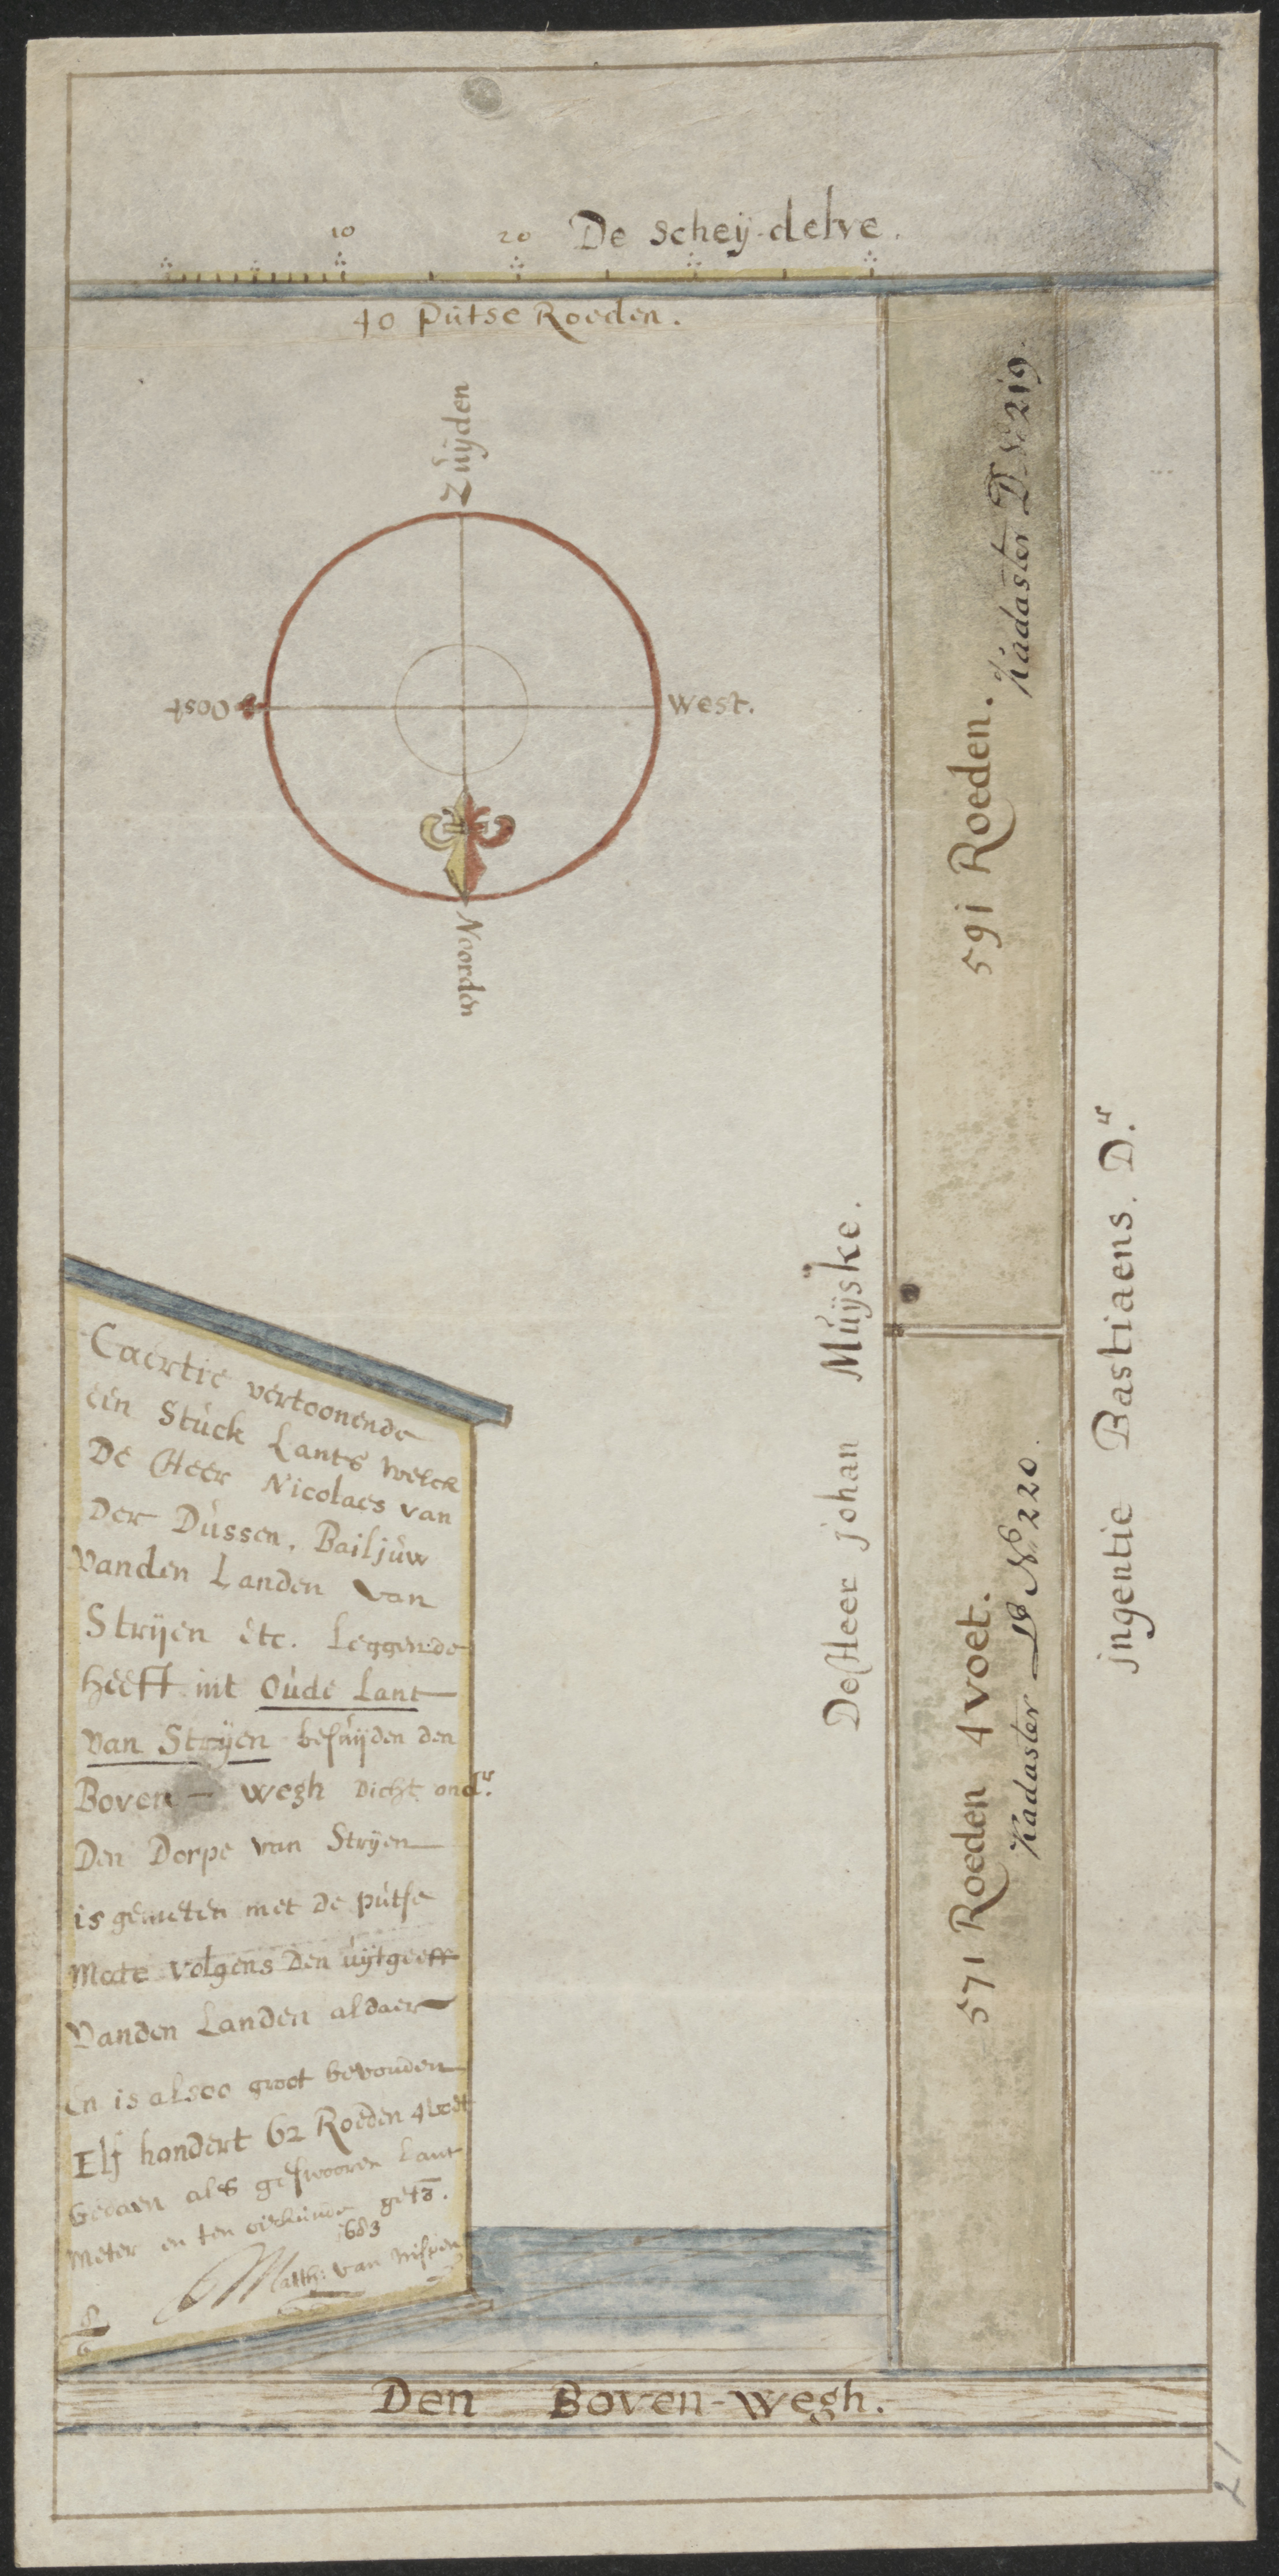 De Scheÿ-delve.
10 20
40 Putse Roeden.
Zuÿden
Oost
West.
Noorden
591 Roeden.
Kadaster D No 219.
De Heer johan Muÿske.
571 Roeden 4 voet.
Kadaster No 220.
jngentie Bastiaens. D.r
Caertie vertoonende
een Stuck Lants welck
De Heer Nicolaes van
Der Dussen, Bailjuw
Vanden Landen van
Strÿen etc. Leggende
heeft int Oude Lant
van Strÿen besuÿden den
Boven-wegh Dicht ond.r
Den Dorpe van Strÿen
is gemeten met de putse
Mate volgens Den uÿtgeeff
Vanden Landen aldaer
En is alsoo groot bevonden
Elf hondert 62 Roeden 4 voet
Gedaen als geswooren Lant
Meter en ten oirkunde get.
1683
Matth: van Nispen
Den Boven-wegh.
21